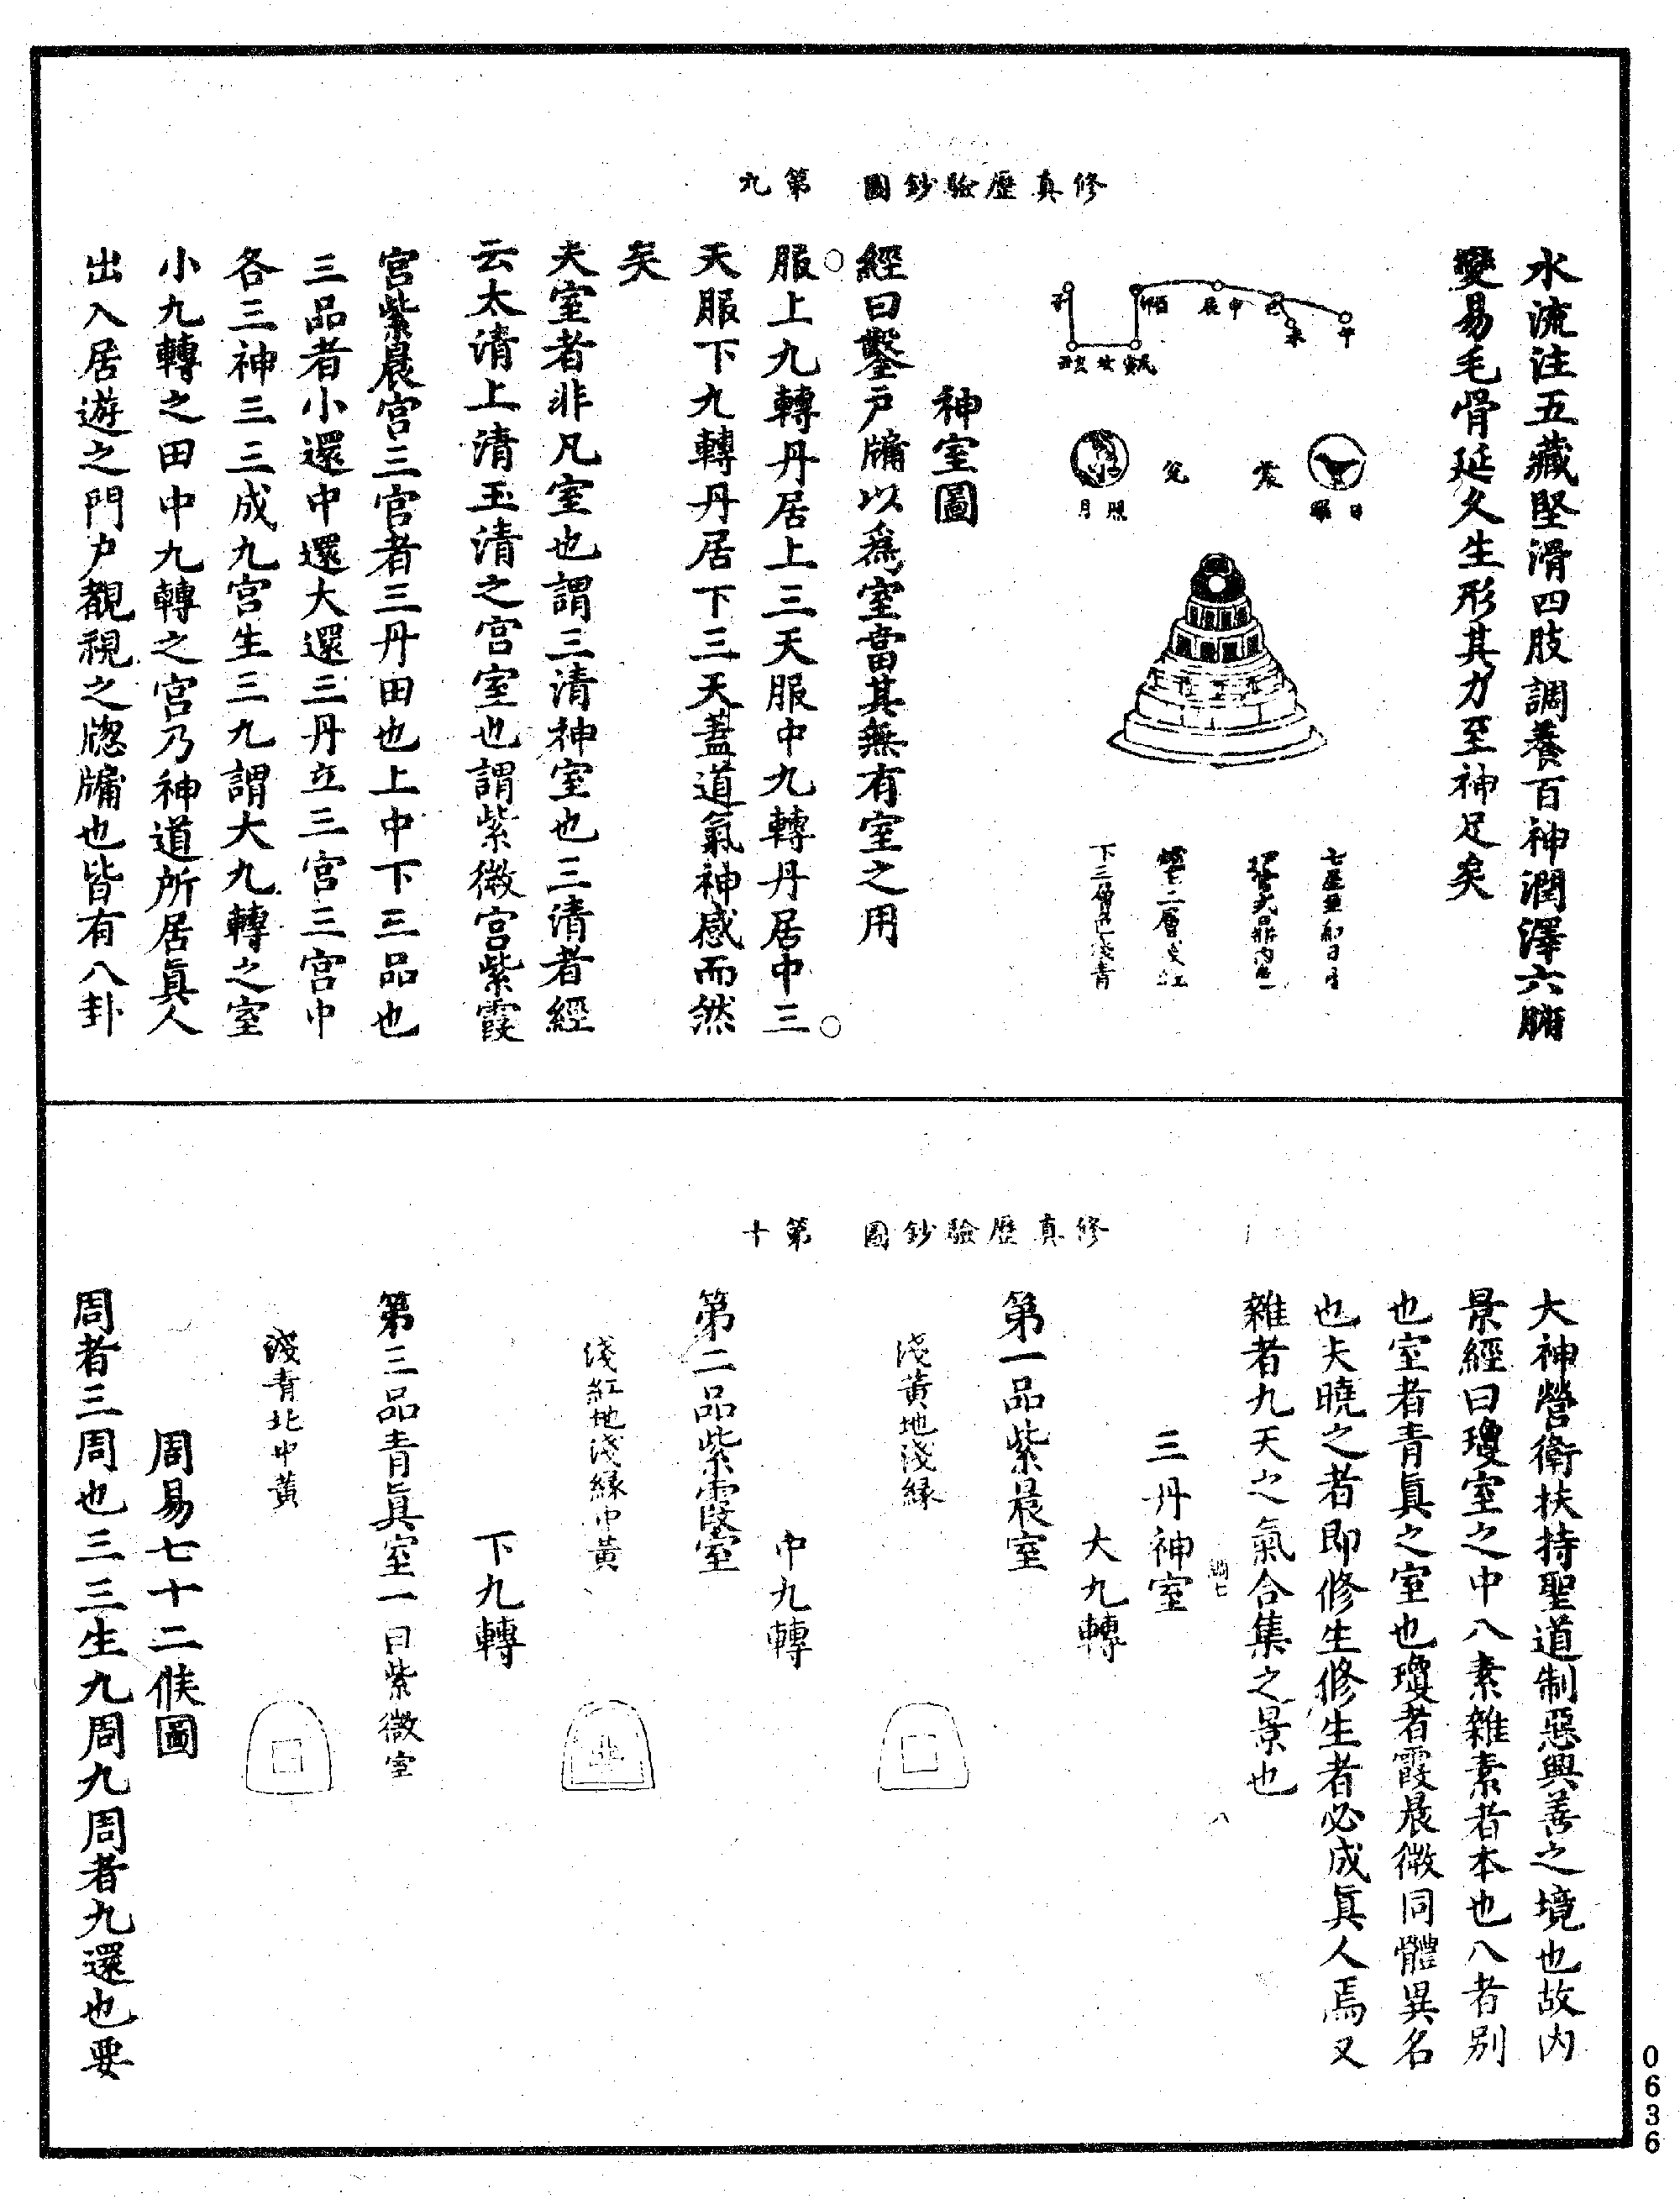 修真歷驗鈔圖 第九
水流注五藏堅滑四肢調養百神潤澤六腑
變易毛骨延久生形其力至神足矣
午
未
巳
申辰
酉卯
子
日曜
震
兌
照月
下三層色淺青
神室圖
經曰鑿戶牖以爲室當其無有室之用
○服上九轉丹居上三天服中九轉丹居中三○
天服下九轉丹居下三天蓋道氣神感而然
矣
夫室者非凡室也謂三清神室也三清者經
云太清上清玉清之宮室也謂紫微宮紫霞
宮紫晨宮三宮者三丹田也上中下三品也
三品者小還中還大還三丹立三宮三宮中
各三神三三成九宮生三九謂大九轉之室
小九轉之田中九轉之宮乃神道所居眞人
出入居遊之門戶觀視之牎牖也皆有八卦
修真歷驗鈔圖 第十
大神營衛扶持聖道制惡興善之境也故內
景經曰瓊室之中八素雜素者本也八者別
也室者青眞之室也瓊者霞晨微同體異名
也夫曉之者即修生修生者必成眞人焉又
雜者九天之氣合集之景也
八
三丹神室
大九轉
第一品紫晨室
淺黃地淺緑
中九轉
第二品紫霞室
淺紅地淺緑中黃
下九轉
第三品青眞室一曰紫微室
淺青北中黃
周易七十二候圖
周者三周也三三生九周九周者九還也要
0636